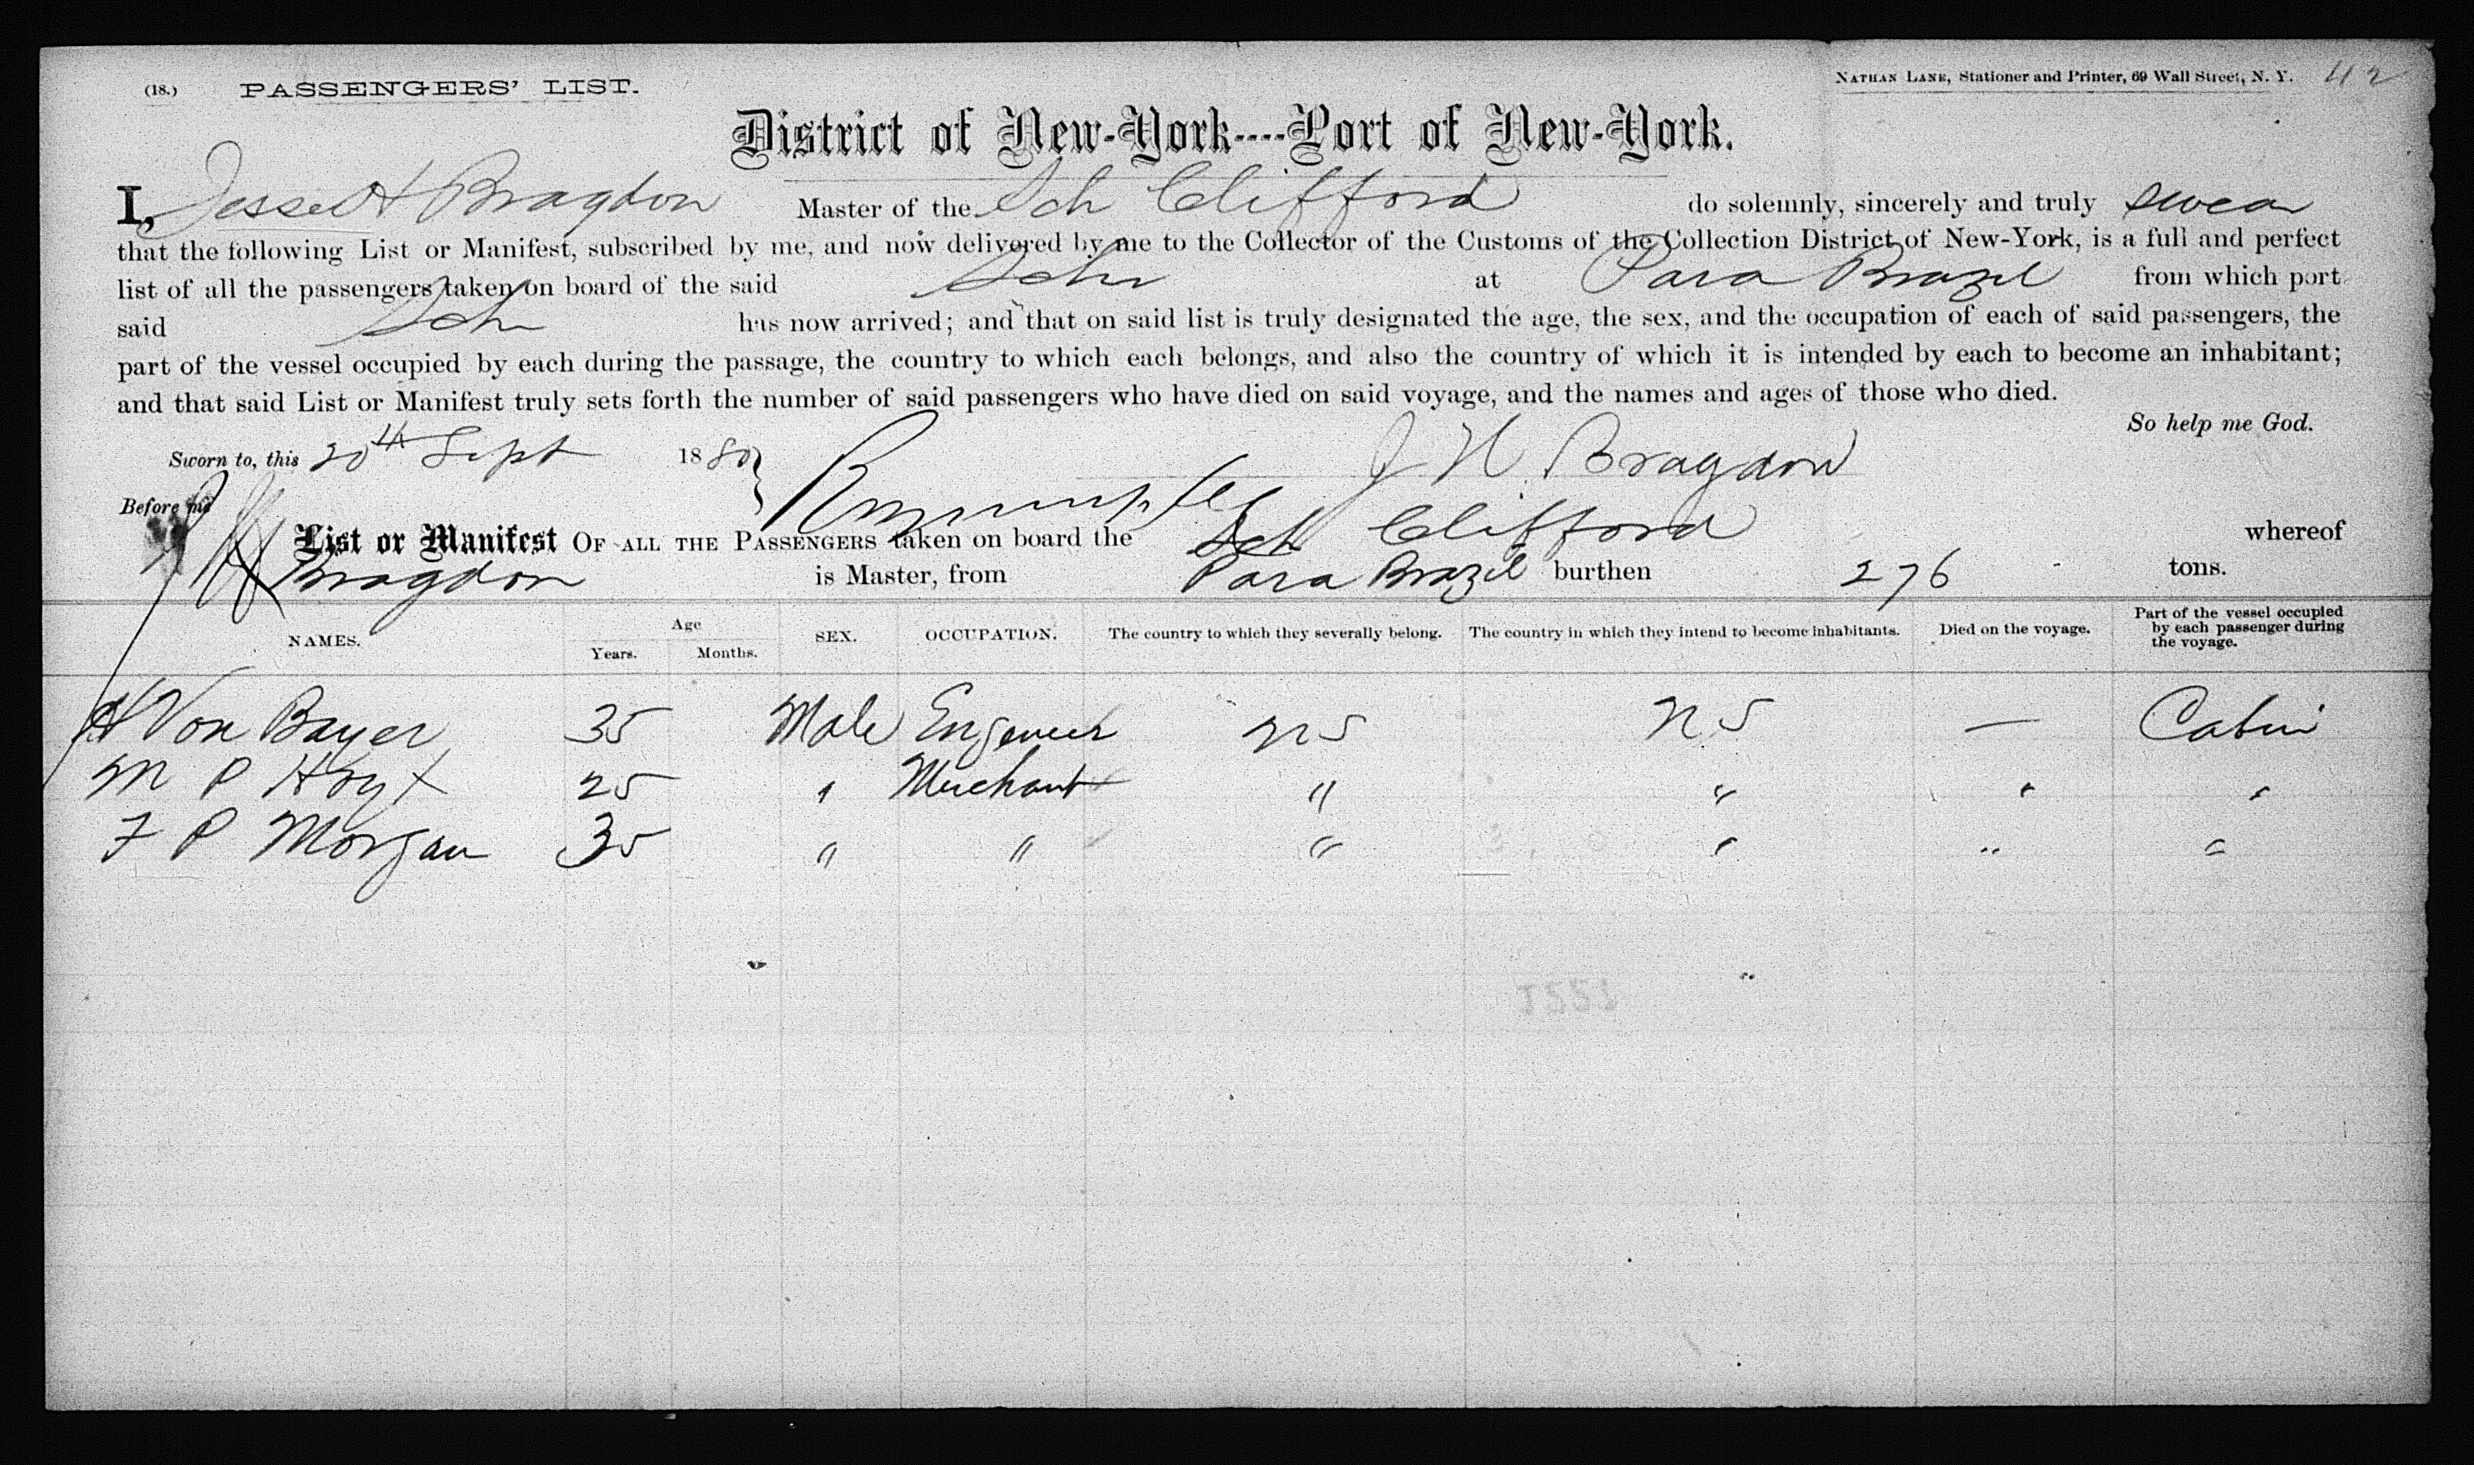 (18.) PASSENGERS' LIST. NATHAN LANE, Stationer and Printer, 69 Wall Street, N. Y. 42
District of New-York----Port of New-York.
I, Jesse H Bragdon Master of the Sch Clifford do solemnly, sincerely and truly swear
that the following List or Manifest, subscribed by me, and now delivered by me to the Collector of the Customs of the Collection District of New-York, is a full and perfect
list of all the passengers taken on board of the said Schr at Para Brazil from which port
said Sch has now arrived; and that on said list is truly designated the age, the sex, and the occupation of each of said passengers, the
part of the vessel occupied by each during the passage, the country to which each belongs, and also the country of which it is intended by each to become an inhabitant;
and that said List or Manifest truly sets forth the number of said passengers who have died on said voyage, and the names and ages of those who died.
So help me God.
Sworn to, this 20th Sept 1880 J H Bragdon
Before me
List or Manifest OF ALL THE PASSENGERS taken on board the Sch Clifford whereof
J H Bragdon is Master, from Para Brazil burthen 276 tons.
NAMES. Age Years. Months. SEX. OCCUPATION. The country to which they severally belong. The country in which they intend to become inhabitants. Died on the voyage. Part of the vessel occupied by each passenger during the voyage.
H Von Bayer 35 Male Engeneer U S U S — Cabin
M P Hoyt 25 " Merchant " " " "
F P Morgan 35 " " " " " "